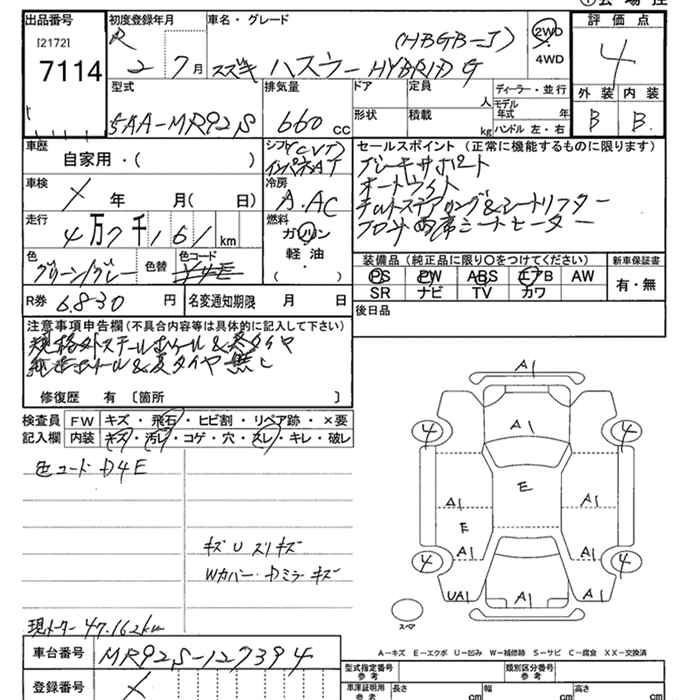 出品番号 初度登録年月 車名・グレード 評価点
[2172] R (HBGB-J) 2WD 4
7114 2 7月 スズキ ハスラー HYBRID G 4WD
型式 排気量 ドア 定員 ディーラー・並行 外装 内装
形状 積載 人 モデル年式 年
5AA-MR92S 660cc kg ハンドル 左・右 B B
車歴 シフト(CVT) セールスポイント(正常に機能するものに限ります)
自家用・( ) インパネAT ブレーキサポート
車検 冷房 オートライト
X 年 月( 日) A.AC チルトステアリング&シートリフター
走行 燃料 フロント両席シートヒーター
4万7千161km ガソリン
色 色替 色コード 軽油 装備品(純正品に限り○をつけてください) 新車保証書
グリーン/グレー ( ) PS PW ABS エアB AW 有・無
R券 6,830円 名変通知期限 月 日 SR ナビ TV カワ
後日品
注意事項申告欄(不具合内容等は具体的に記入して下さい)
規格外スチールホイール&冬タイヤ
純正ホイール&夏タイヤ無し
修復歴 有 〔箇所 〕
検査員 FW キズ・飛石・ヒビ割・リペア跡・×要
記入欄 内装 キズ・汚レ・コゲ・穴・スレ・キレ・破レ
色コード D4E
キズ U スリキズ
Wカバー・Dミラーキズ
現メーター 47,162km
A1
4 A1 4
E
A1 A1
E
A1 A1
4 4
UA1 A1 A1
A1
スペア
A-キズ E-エクボ U-凹み W-補修跡 S-サビ C-腐食 XX-交換済
車台番号 MR92S-127394
登録番号 X
型式指定番号 参考 類別区分番号 参考
車庫証明用 参考 長さ cm 幅 cm 高さ cm